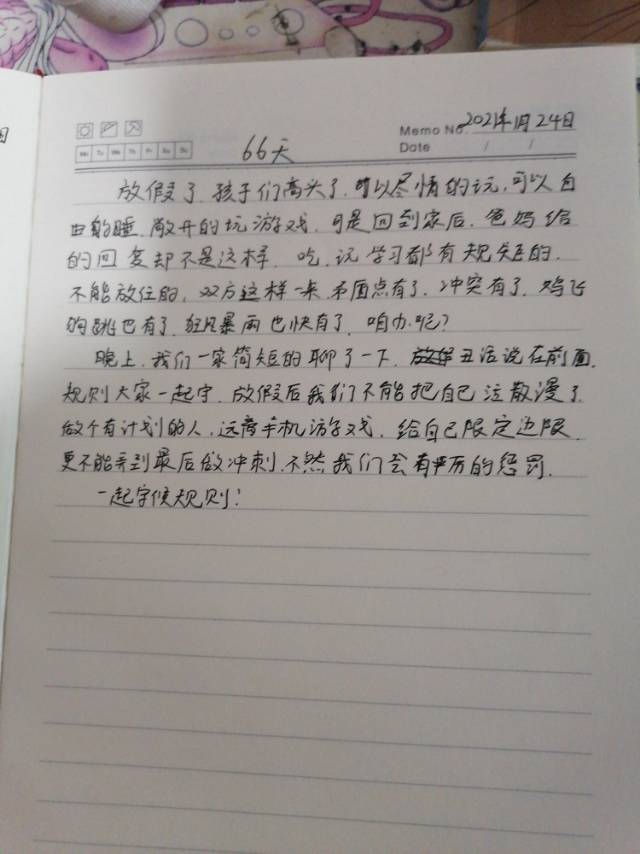 Memo No. 2021年1月24日
Mo Tu We Th Fr Sa Su
Date / /
66天
放假了,孩子们高兴了,可以尽情的玩,可以自
由的睡,敞开的玩游戏,可是回到家后,爸妈给
的回复却不是这样,吃、玩、学习都有规矩的,
不能放任的,双方这样一来矛盾点有了,冲突有了,鸡飞
狗跳也有了,狂风暴雨也快有了,咱办呢?
晚上,我们一家简短的聊了一下,丑话说在前面,
规则大家一起守,放假后我们不能把自己泣散漫了,
做个有计划的人,远离手机游戏,给自己限定边限,
更不能弄到最后做冲刺,不然我们会有严厉的惩罚,
一起守候规则!